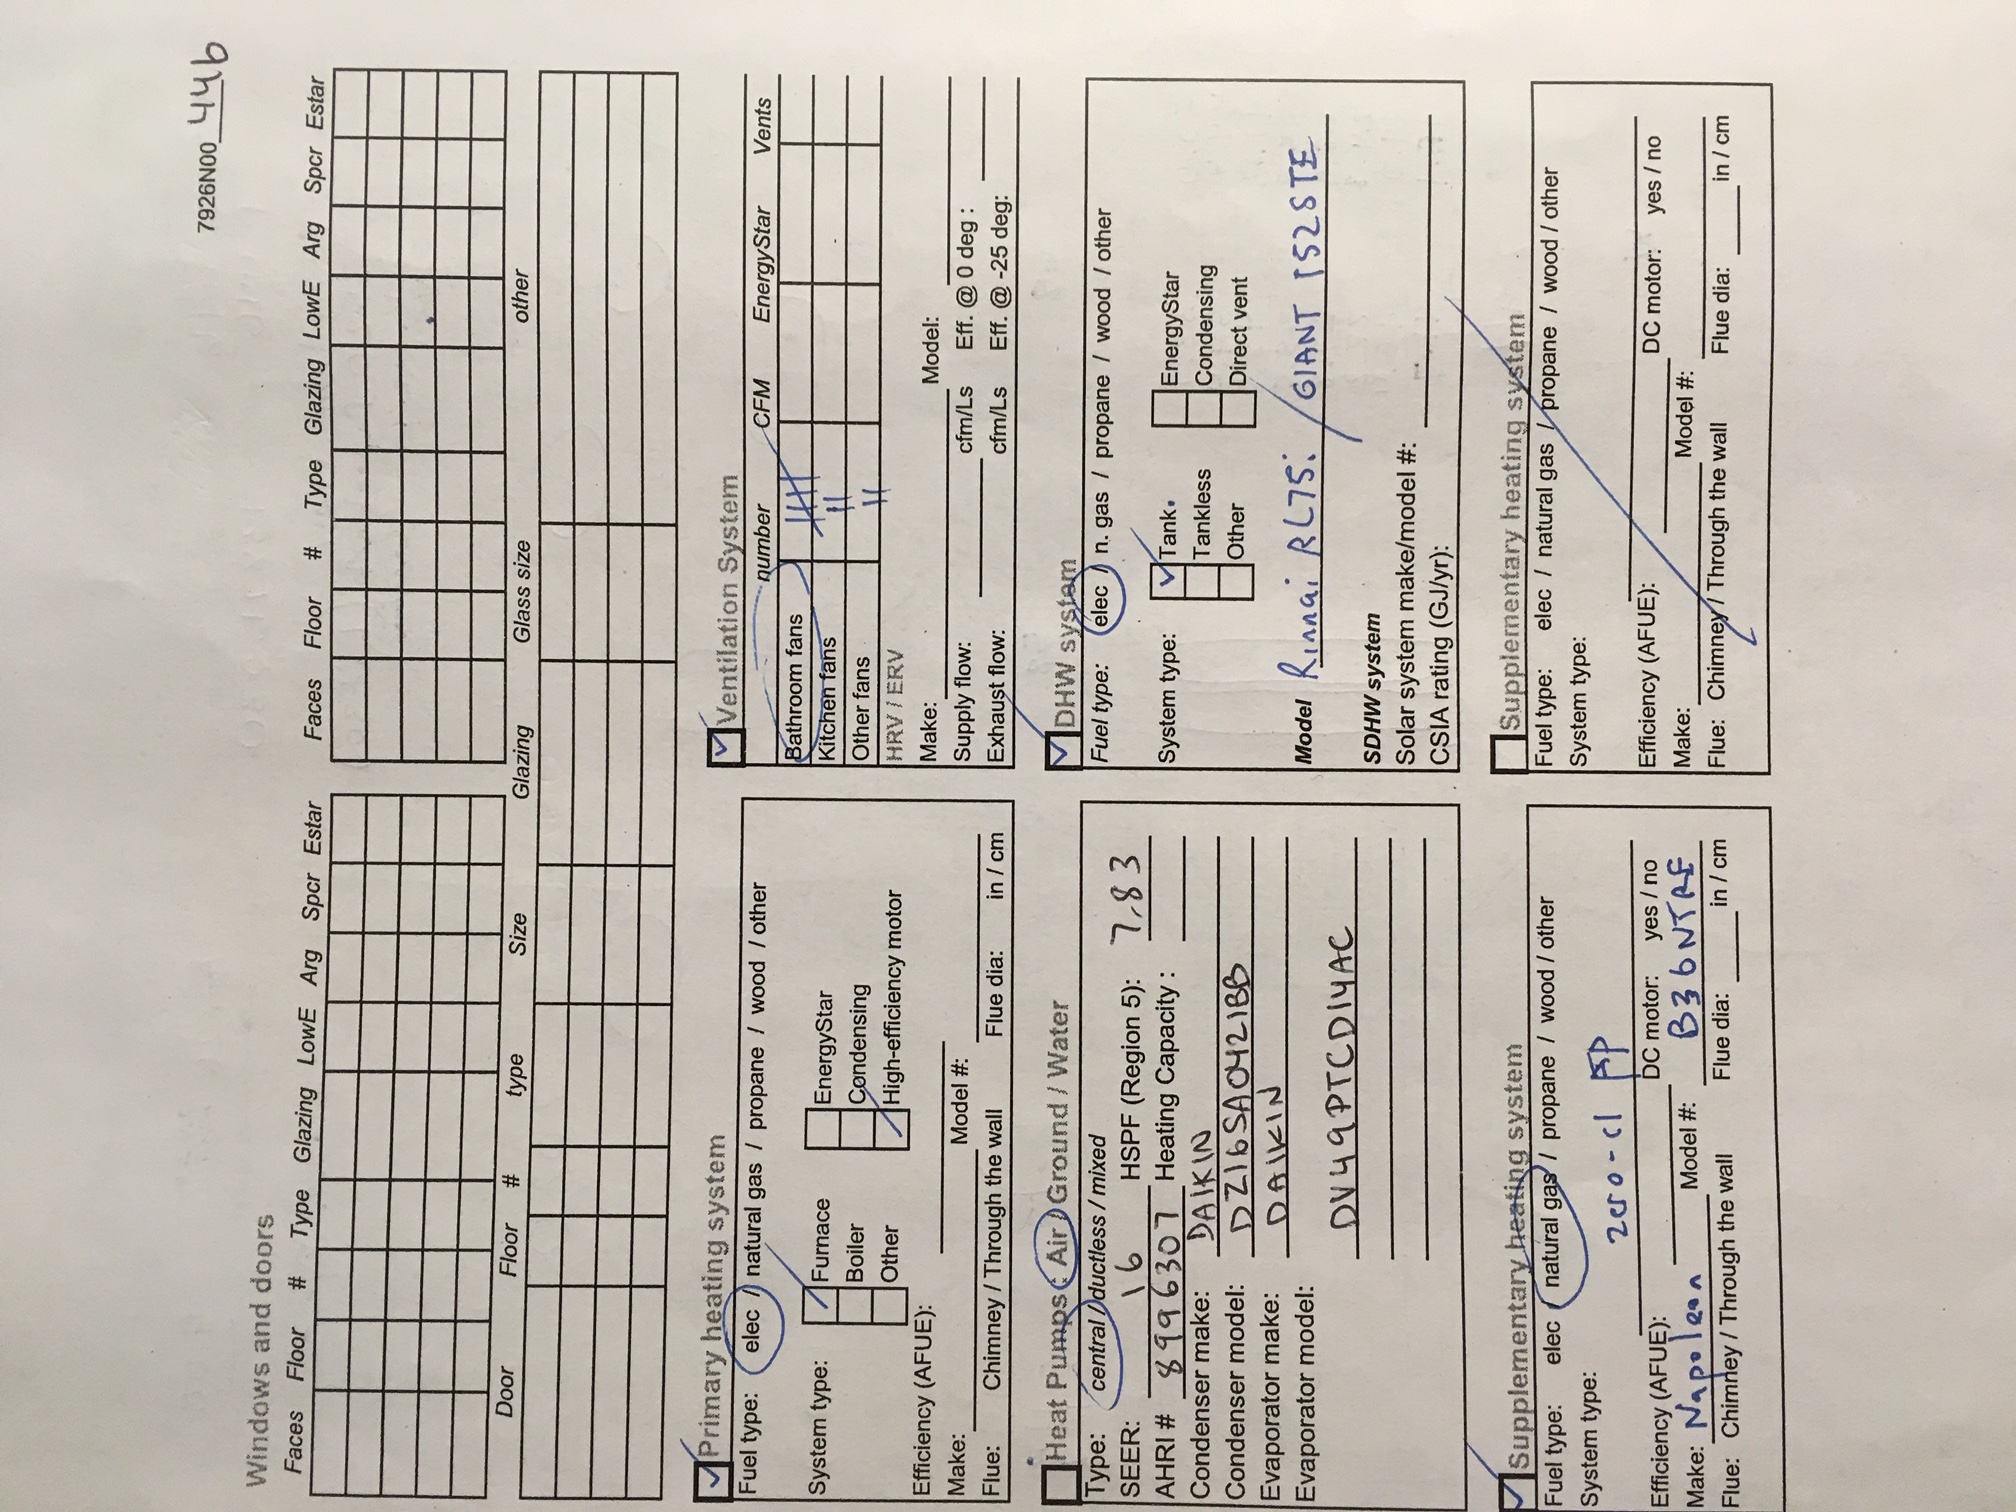 7926N00 446
Windows and doors
Faces Floor # Type Glazing LowE Arg Spcr Estar
Faces Floor # Type Glazing LowE Arg Spcr Estar
Door Floor # type Size Glazing Glass size other
Primary heating system
Fuel type: elec / natural gas / propane / wood / other
System type: Furnace EnergyStar
Boiler Condensing
Other High-efficiency motor
Efficiency (AFUE):
Make: Model #:
Flue: Chimney / Through the wall Flue dia: in / cm
Ventilation System
number CFM EnergyStar Vents
Bathroom fans
Kitchen fans
Other fans
HRV / ERV
Make: Model:
Supply flow: cfm/Ls Eff. @ 0 deg :
Exhaust flow: cfm/Ls Eff. @ -25 deg:
Heat Pumps: Air / Ground / Water
Type: central / ductless / mixed
SEER: 16 HSPF (Region 5): 7.83
AHRI # 8996307 Heating Capacity :
Condenser make: DAIKIN
Condenser model: DZ16SA0421BB
Evaporator make: DAIKIN
Evaporator model:
DV49PTCD14AC
DHW system
Fuel type: elec / n. gas / propane / wood / other
System type: Tank EnergyStar
Tankless Condensing
Other Direct vent
Model Rinnai RL75: / GIANT 152STE
SDHW system
Solar system make/model #:
CSIA rating (GJ/yr):
Supplementary heating system
Fuel type: elec / natural gas / propane / wood / other
System type:
zero-cl FP
Efficiency (AFUE): DC motor: yes / no
Make: Napoleon Model #: B36NTRF
Flue: Chimney / Through the wall Flue dia: in / cm
Supplementary heating system
Fuel type: elec / natural gas / propane / wood / other
System type:
Efficiency (AFUE): DC motor: yes / no
Make: Model #:
Flue: Chimney / Through the wall Flue dia: in / cm